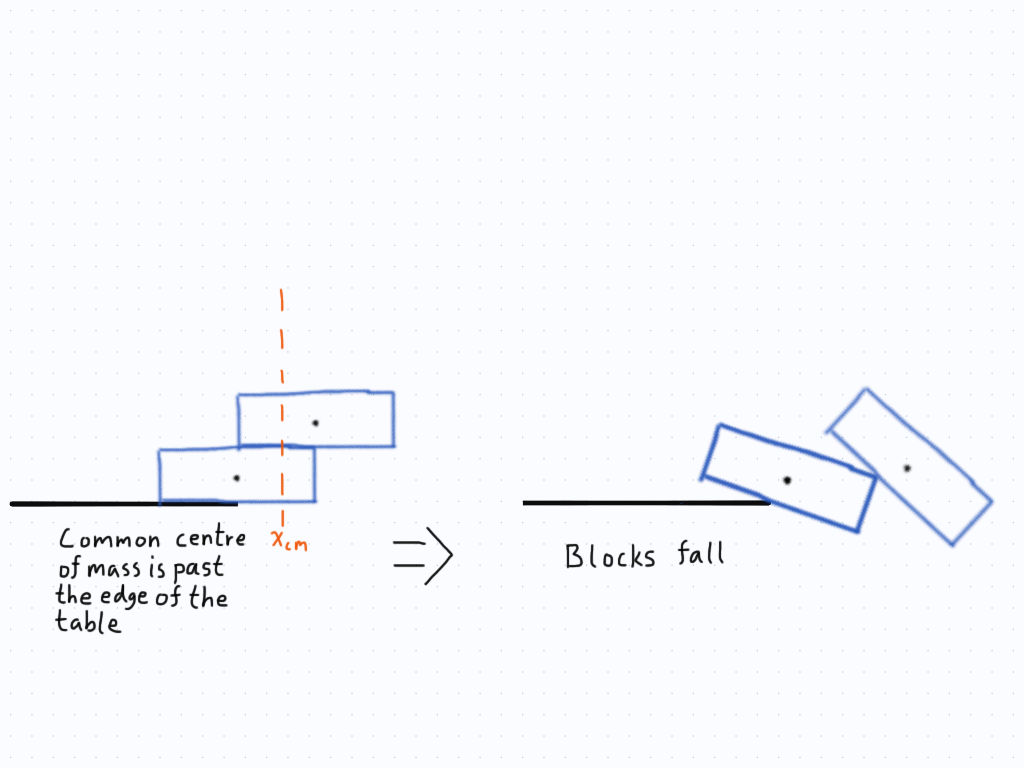 Common centre
of mass is past
the edge of the
table
x_cm
⇒
Blocks fall